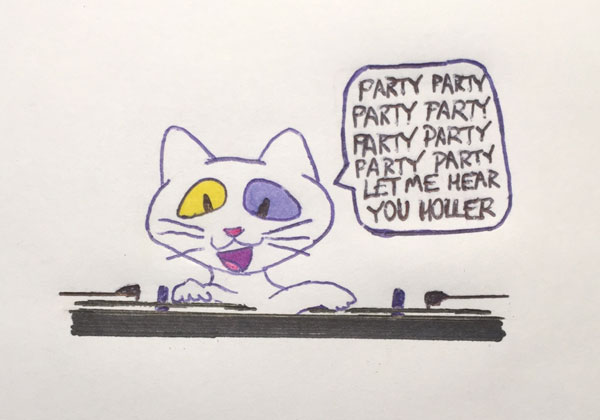 PARTY PARTY
PARTY PARTY
PARTY PARTY
PARTY PARTY
LET ME HEAR
YOU HOLLER